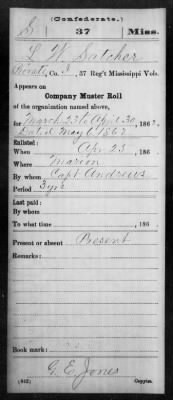 (Confederate.)
S 37 Miss.
L W Satcher
Private, Co. I, 37 Reg't Mississippi Vols.
Appears on
Company Muster Roll
of the organization named above,
for March 23 to April 30, 1862.
Dated May 1 1862
Enlisted:
When Apr 23, 186
Where Marion
By whom Capt Andrews
Period 3 yrs
Last paid:
By whom
To what time , 186 .
Present or absent Present
Remarks:
Book mark:
G. E. Jones
(642) Copyist.